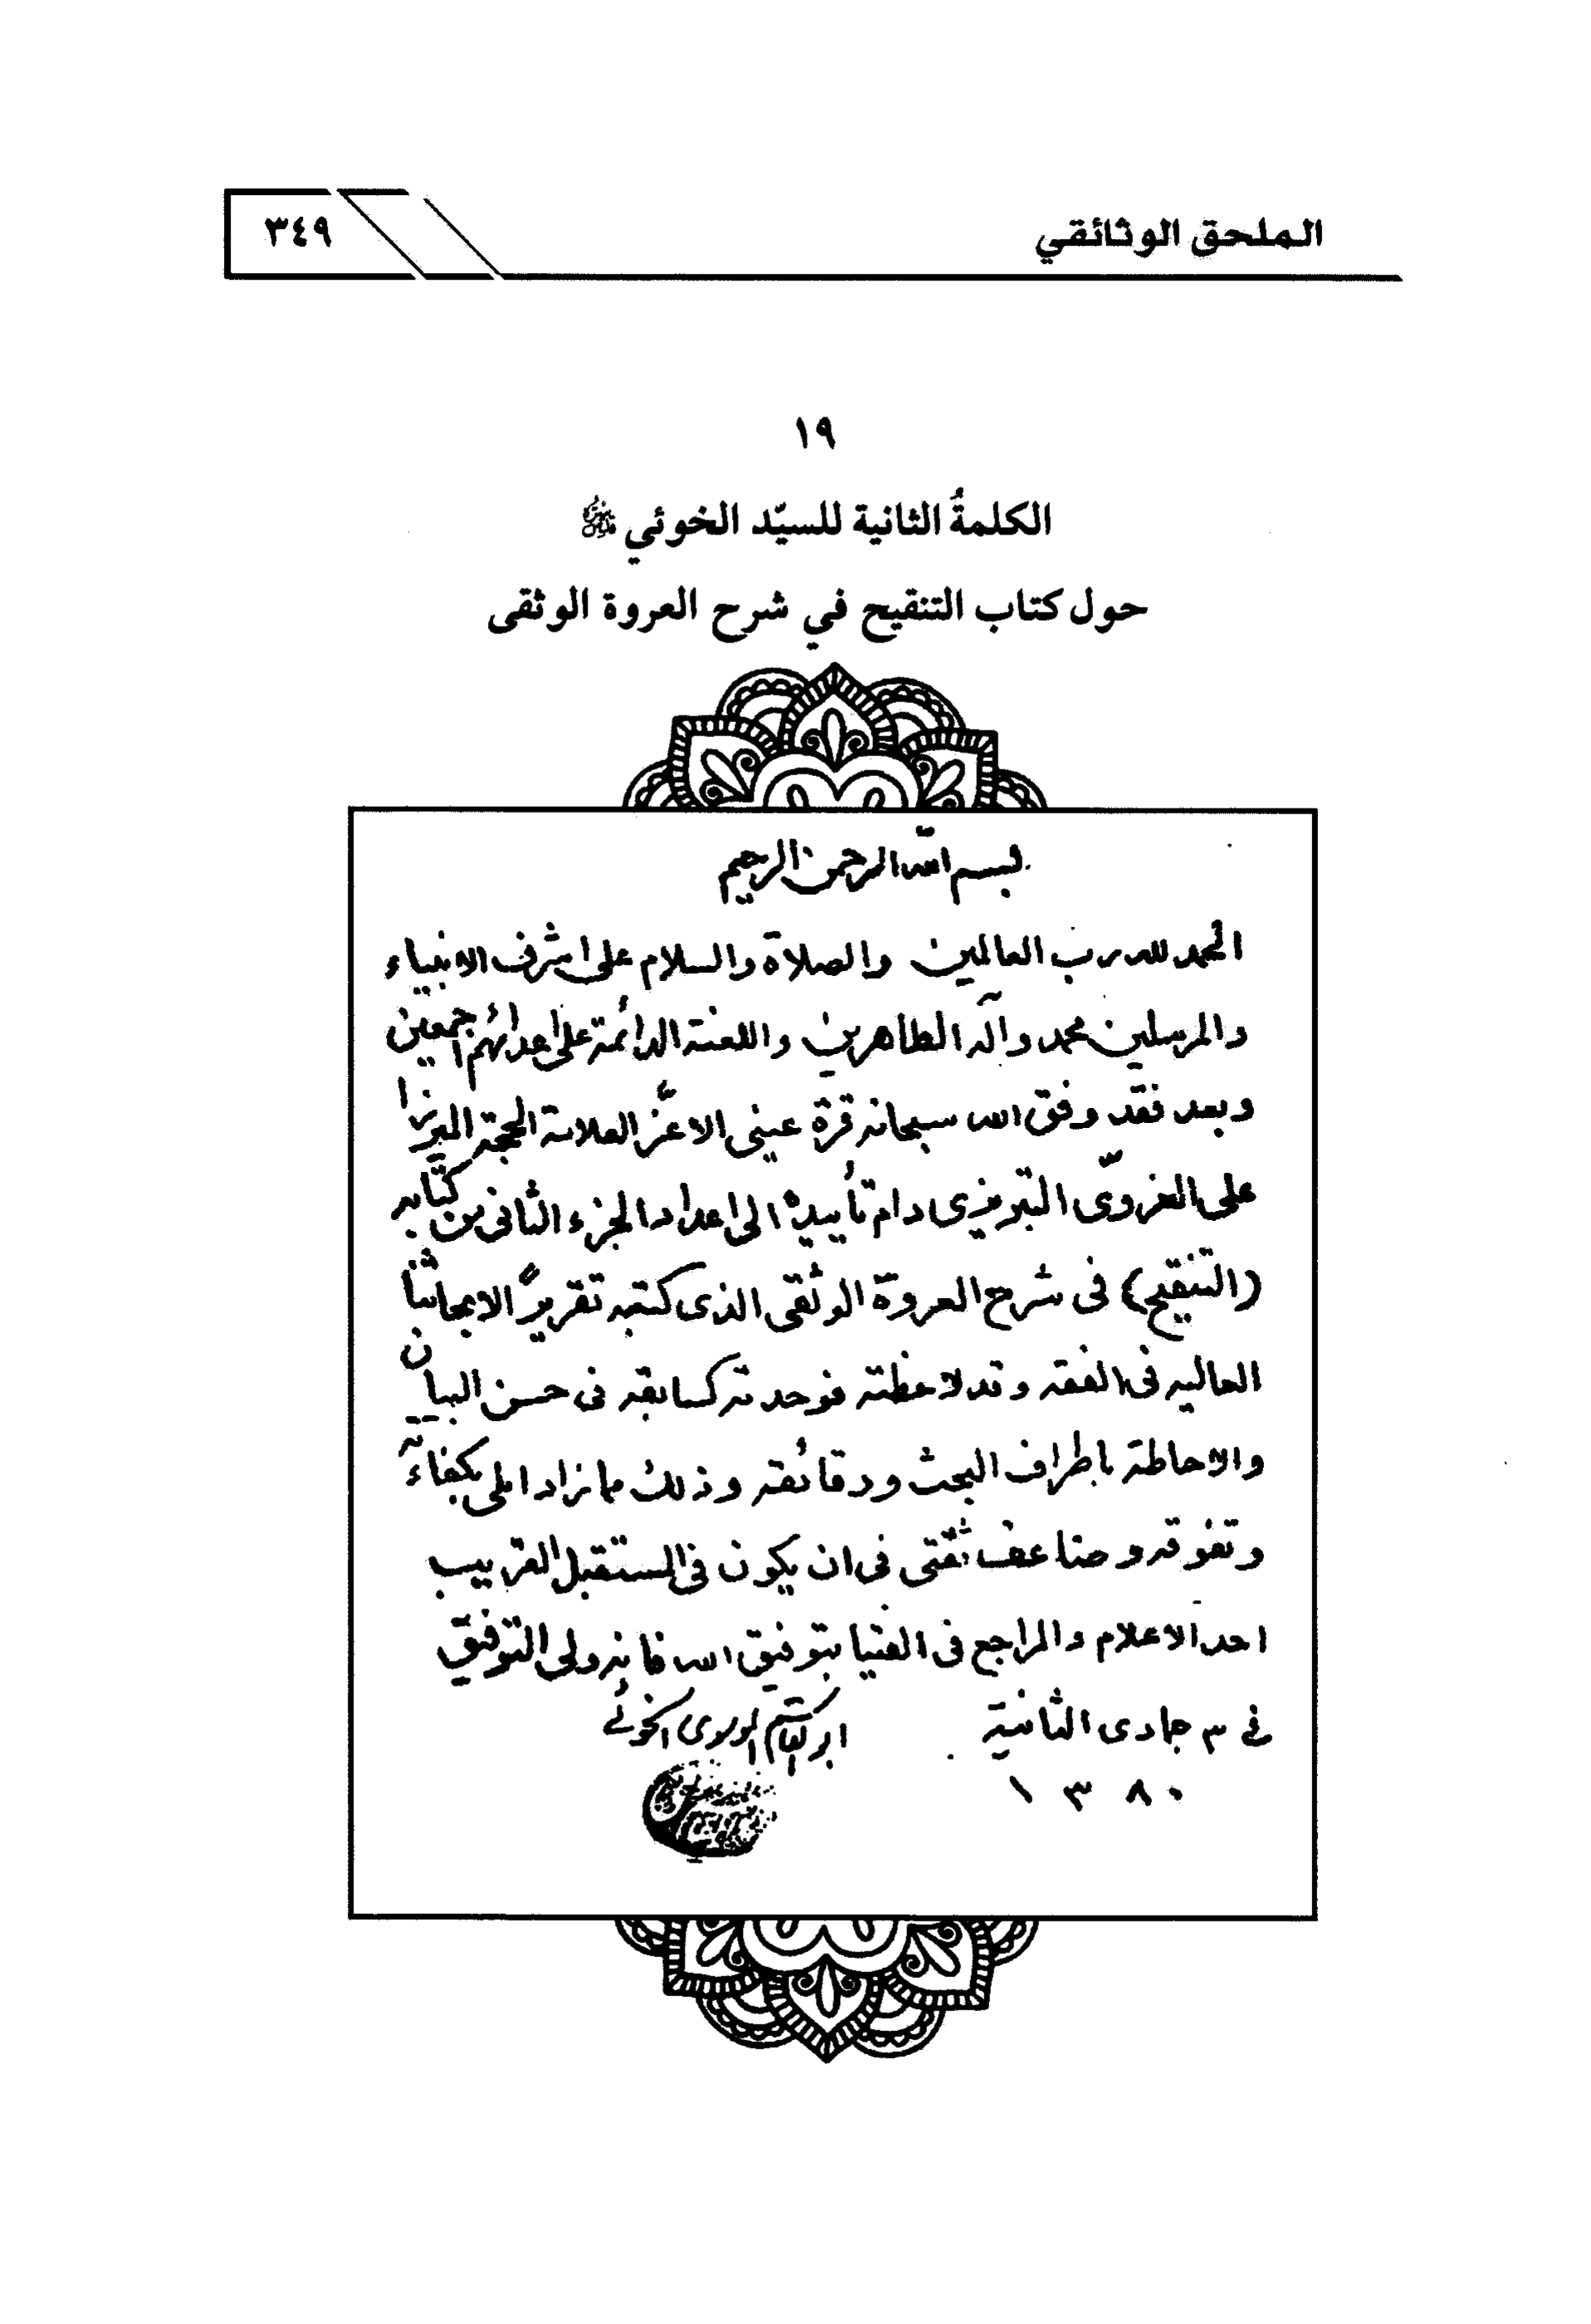 الملحق الوثائقي
٣٤٩
١٩
الكلمةُ الثانية للسيّد الخوئي قدس سره
حول كتاب التنقيح في شرح العروة الوثقى
بسم الله الرحمن الرحيم
الحمد لله رب العالمين والصلاة والسلام على اشرف الانبياء
والمرسلين محمد وآله الطاهرين واللعنة الدائمة على اعدائهم اجمعين
وبعد فقد وفق الله سبحانه قرة عيني الاعزّ العلامة الحجة الميرزا
على الغروىّ التبريزى دام تأييده الى اعداد الجزء الثانى من كتابه
(التنقيح) فى شرح العروة الوثقى الذى كتبه تقريرًا لابحاثنا
العاليه فى الفقه وقد لاحظته فوجدته كسابقه فى حسن البيان
والاحاطة باطراف البحث ودقائقه وذلك مما زاد املى بكفاءته
وتفوقه وضاعف ثقتى فى ان يكون فى المستقبل القريب
احد الاعلام والمراجع فى الفتيا بتوفيق الله فانه ولى التوفيق
فى ٣ جمادى الثانية
ابو القاسم الموسوى الخوئي
١٣٨٠